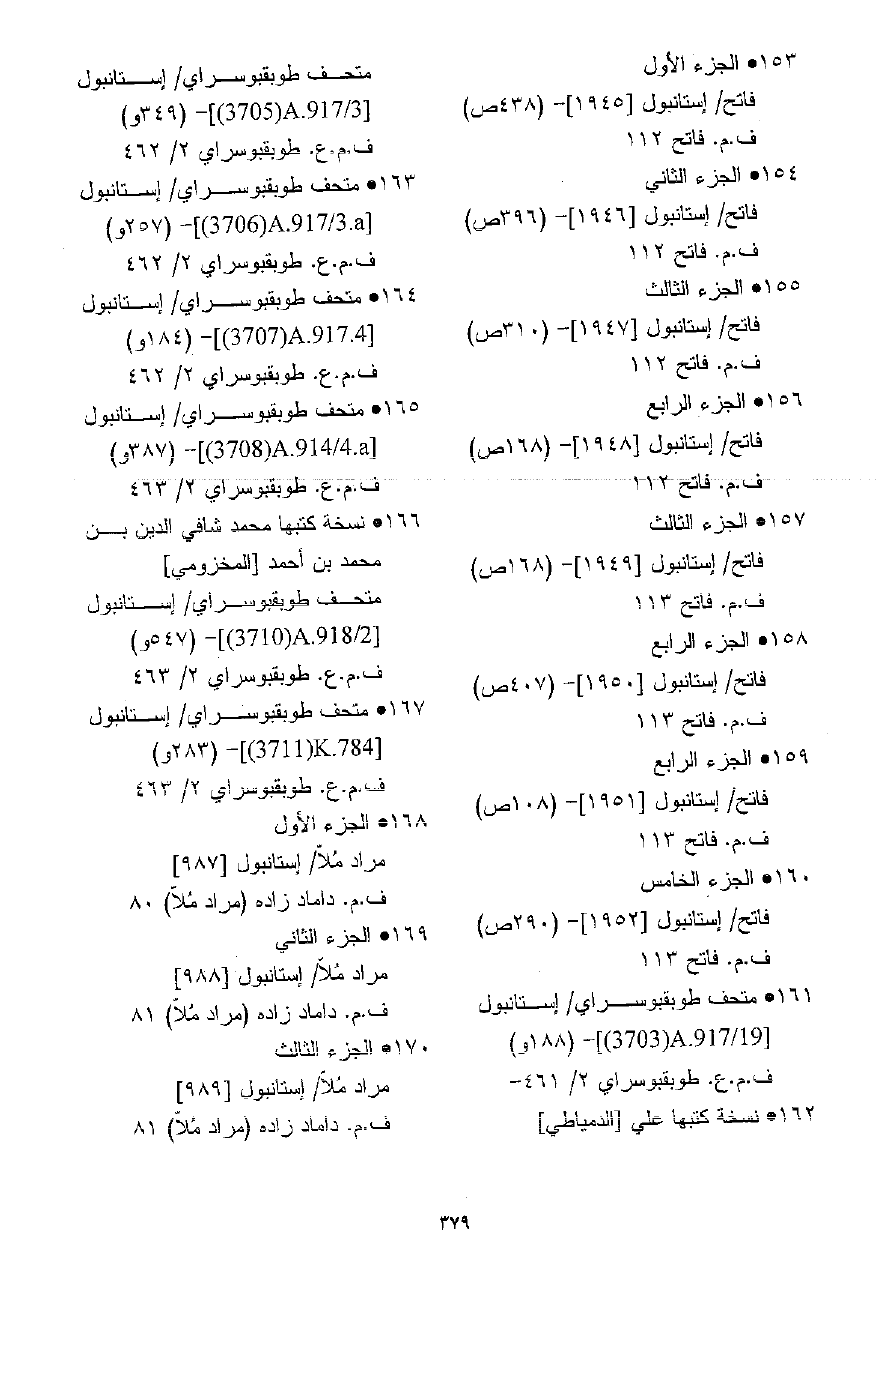 ١٥٣• الجزء الأول
فاتح/ إستانبول [١٩٤٥]- (٤٣٨ص)
ف.م. فاتح ١١٢
١٥٤• الجزء الثاني
فاتح/ إستانبول [١٩٤٦]- (٣٩٦ص)
ف.م. فاتح ١١٢
١٥٥• الجزء الثالث
فاتح/ إستانبول [١٩٤٧]- (٣١٠ص)
ف.م. فاتح ١١٢
١٥٦• الجزء الرابع
فاتح/ إستانبول [١٩٤٨]- (١٦٨ص)
ف.م. فاتح ١١٢
١٥٧• الجزء الثالث
فاتح/ إستانبول [١٩٤٩]- (١٦٨ص)
ف.م. فاتح ١١٣
١٥٨• الجزء الرابع
فاتح/ إستانبول [١٩٥٠]- (٤٠٧ص)
ف.م. فاتح ١١٣
١٥٩• الجزء الرابع
فاتح/ إستانبول [١٩٥١]- (١٠٨ص)
ف.م. فاتح ١١٣
١٦٠• الجزء الخامس
فاتح/ إستانبول [١٩٥٢]- (٢٩٠ص)
ف.م. فاتح ١١٣
١٦١• متحف طوبقبوسراي/ إستانبول
[A.917/19(3703)]- (١٨٨و)
ف.م.ع. طوبقبوسراي ٢/ ٤٦١-
١٦٢• نسخة كتبها علي [الدمياطي]
متحف طوبقبوسراي/ إستانبول
[A.917/3(3705)]- (٣٤٩و)
ف.م.ع. طوبقبوسراي ٢/ ٤٦٢
١٦٣• متحف طوبقبوسراي/ إستانبول
[A.917/3.a(3706)]- (٢٥٧و)
ف.م.ع. طوبقبوسراي ٢/ ٤٦٢
١٦٤• متحف طوبقبوسراي/ إستانبول
[A.917.4(3707)]- (١٨٤و)
ف.م.ع. طوبقبوسراي ٢/ ٤٦٢
١٦٥• متحف طوبقبوسراي/ إستانبول
[A.914/4.a(3708)]- (٣٨٧و)
ف.م.ع. طوبقبوسراي ٢/ ٤٦٣
١٦٦• نسخة كتبها محمد شافي الدين بن
محمد بن أحمد [المخزومي]
متحف طوبقبوسراي/ إستانبول
[A.918/2(3710)]- (٥٤٧و)
ف.م.ع. طوبقبوسراي ٢/ ٤٦٣
١٦٧• متحف طوبقبوسراي/ إستانبول
[K.784(3711)]- (٢٨٣و)
ف.م.ع. طوبقبوسراي ٢/ ٤٦٣
١٦٨• الجزء الأول
مراد مُلاّ/ إستانبول [٩٨٧]
ف.م. داماد زاده (مراد مُلاّ) ٨٠
١٦٩• الجزء الثاني
مراد مُلاّ/ إستانبول [٩٨٨]
ف.م. داماد زاده (مراد مُلاّ) ٨١
١٧٠• الجزء الثالث
مراد مُلاّ/ إستانبول [٩٨٩]
ف.م. داماد زاده (مراد مُلاّ) ٨١
٣٧٩